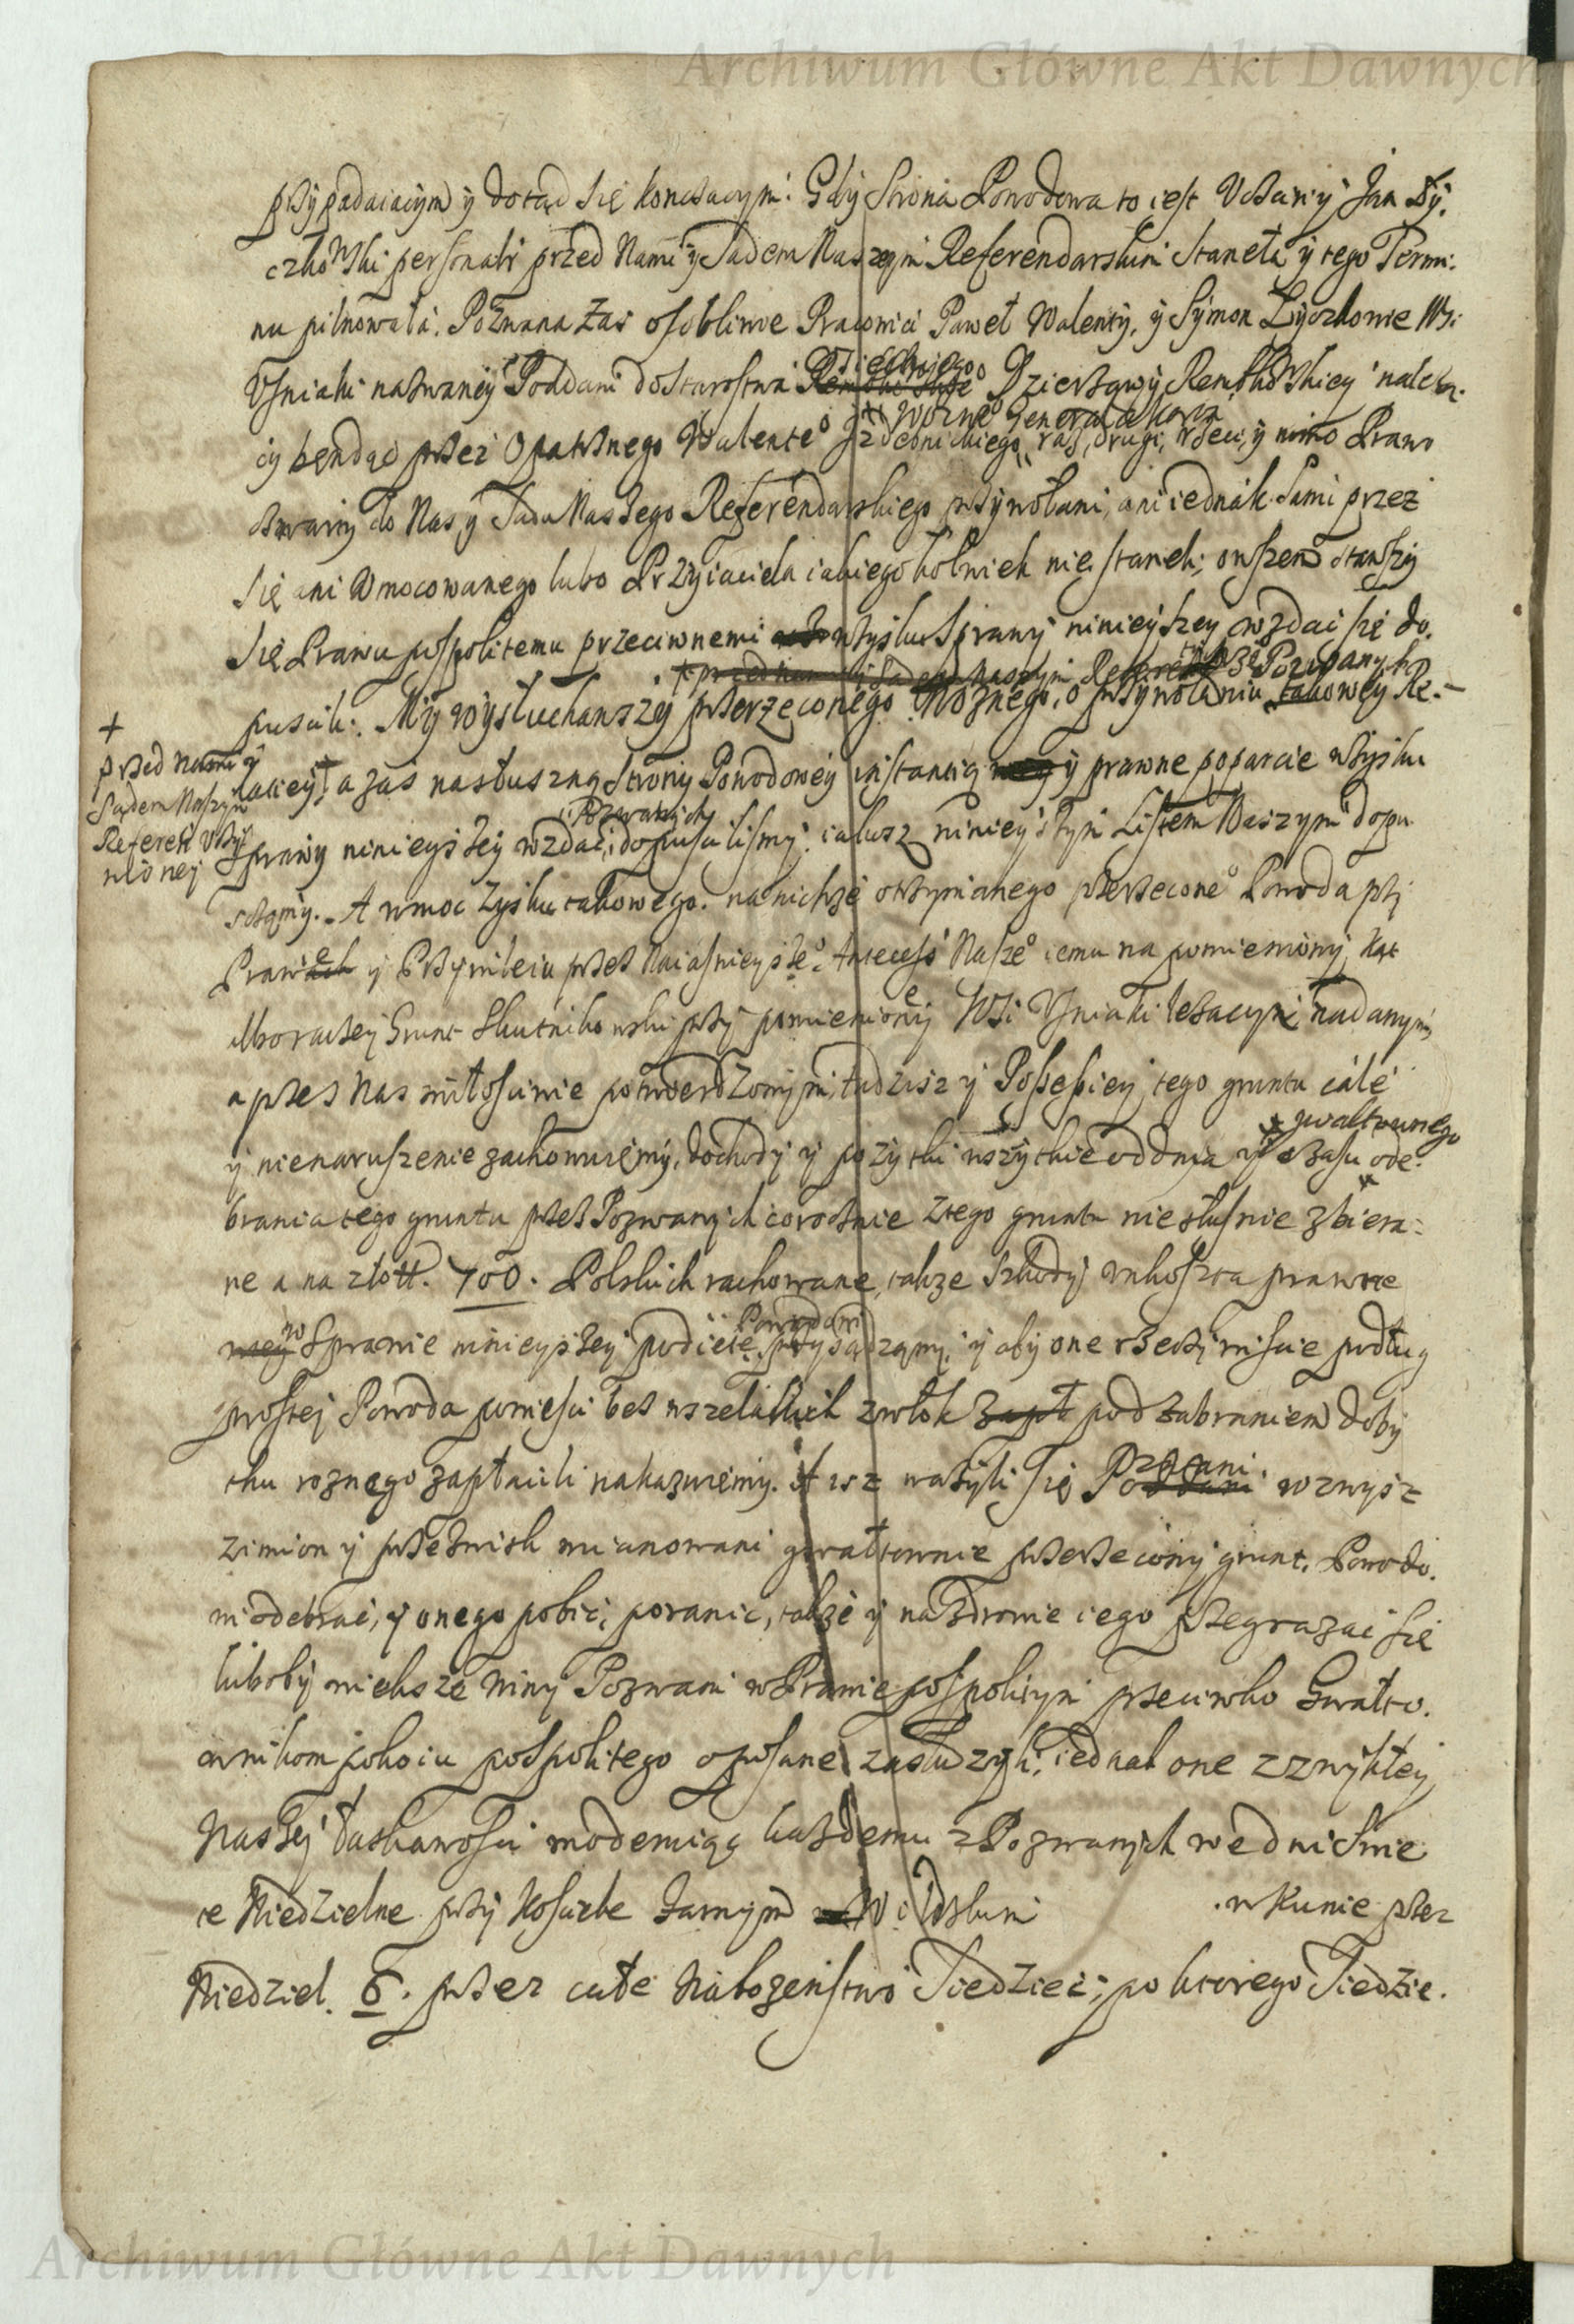 Archiwum Główne Akt Dawnych
przypadaiącym y dotąd się konczącym. Gdy Strona Powodowa to iest Uczciwy Jan Ży-
czkowski personalr przed Nami y Sądem Naszym Referendarskim stanęła y tego Termi-
nu pilnowała. Pozwana zas osobliwie Pracowici Paweł Walenty, y Symon Życzkowie Wsi
Uśniaki nazwaney Poddani do Starostwa Dzierżawy Rembkowskiey należą-
cy będąc przez Opatrznego Walente⁰ Woźne⁰ Generała raz, drugi, trzeci, y nimo Prawo
do Nas y Sądu Naszego Referendarskiego przywołani, ani iednak sami przez
się ani Umocowanego lubo Przyiaciela iakiegokolwiek nie stanęli; owszem stawszy
się Prawu pospolitemu przeciwnemi w zysku Sprawy ninieyszey wzdać się do-
Pozwanych
puscili. My wysłuchawszy przerzeconego Woźnego, o przywołaniu takowey Re-
+
przed Nami y
Sądem Naszym
Referen Uczy
nioney
laciey, a zas na słuszną Strony Powodowey instantią y prawne poparcie w zysku
Pozwanych
Sprawy ninieyszey wzdać dopuscilismy. iakosz ninieyszym Listem Naszym dopu
sczamy. A w moc Zysku takowego na nichże otrzymanego przerzecone⁰ Powoda przy
Prawie y Przywileiu przez Naiasnieysze⁰ Antecess Nasze⁰ iemu na pomieniony Kąt
Grunt Skutnikowski przy pomienioney Wsi Usniaki leżacym nadanym,
a przez Nas miłosciwie potwierdzonym, tudziesz y Possessiey tego gruntu całe
gwałtownego
y nienaruszenie zachowuiemy, dochody y pozytki wszytkie od dnia y czasu ode-
brania tego gruntu przez Pozwanych corocznie z tego gruntu niesłusnie zbiera-
ne a na złott. 700. Polskich rachowane, także szkody y nkoszta prawne
Powodowi
w Sprawie ninieyszey podięte przysądzamy, y aby one rzeczywiscie podług
prostej Powoda powiesci bez wszelakich zwłok zapł pod zabraniem doby
tku roznego zapłacili nakazuiemy. A isz ważyli się Pozwani wzwysz
z imion y przezwisk mianowani gwałtownie przerzeciony grunt Powodo-
wi odebrać, y onego pobić, poranic, także y na zdrowie iego przegrazac się
lubo by większe winy Pozwani w Prawie pospolitym przeciwko Gwałto-
wnikom pokoiu pospolitego opisane zasłuzyli, iednak one z zwykłey
Naszej łaskawosci moderuiąc każdemu z Pozwanych we dni Swie
te Niedzielne przy Kosciele Farnym w Kunie przez
Niedziel. 6. przez całe Nabożenstwo Siedziec; po ktorego Siedzie-
Archiwum Główne Akt Dawnych